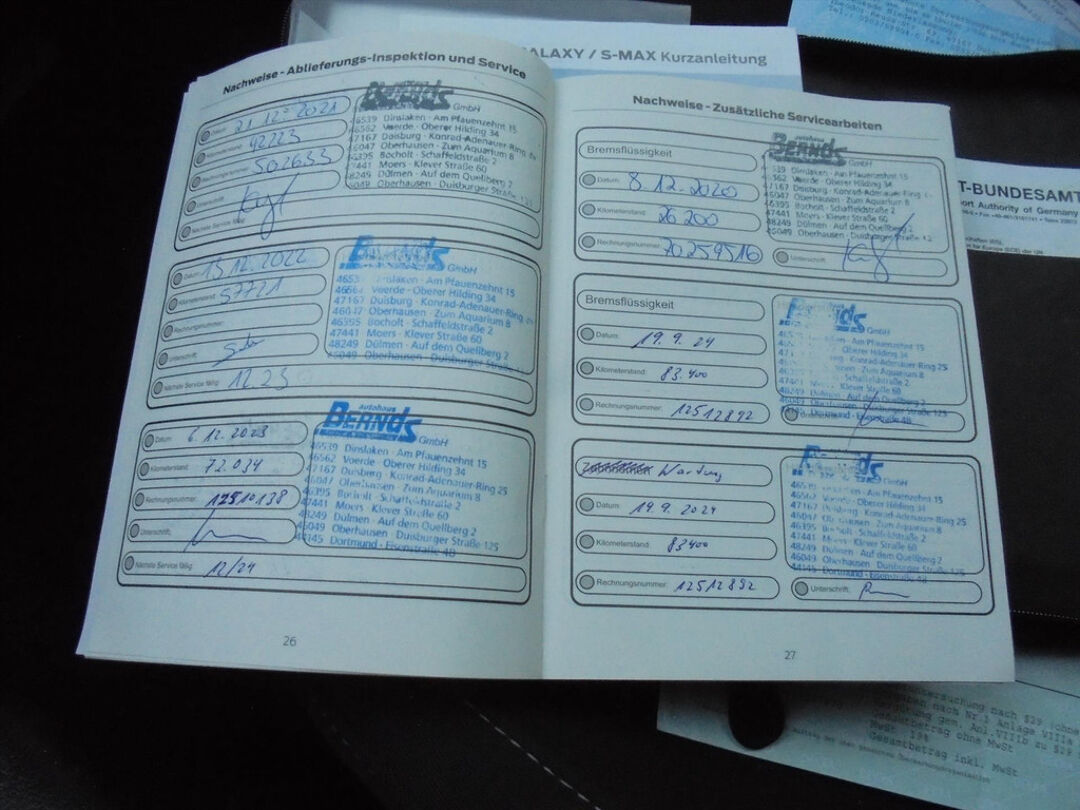 ALAXY / S-MAX Kurzanleitung
Nachweise - Ablieferungs-Inspektion und Service
Datum: 21.12.2021
42223
Rechnungsnummer: 502633
Unterschrift:
Nächste Service fällig:
BERNDS GmbH
46539 Dinslaken · Am Pfauenzehnt 15
46562 Voerde · Oberer Hilding 34
47167 Duisburg · Konrad-Adenauer-Ring
46047 Oberhausen · Zum Aquarium 8
46395 Bocholt · Schaffeldstraße 2
47441 Moers · Klever Straße 60
48249 Dülmen · Auf dem Quellberg 2
Oberhausen · Duisburger Straße
Datum: 15.12.2022
Kilometerstand: 57721
Rechnungsnummer:
Unterschrift:
Nächste Service fällig: 12.23
GmbH
Dinslaken · Am Pfauenzehnt 15
Voerde · Oberer Hilding 34
47167 Duisburg · Konrad-Adenauer-Ring
46047 Oberhausen · Zum Aquarium 8
46395 Bocholt · Schaffeldstraße 2
47441 Moers · Klever Straße 60
48249 Dülmen · Auf dem Quellberg 2
Oberhausen · Duisburger Straße
Datum: 6.12.2023
Kilometerstand: 72.034
Rechnungsnummer: 12510138
Unterschrift:
Nächste Service fällig: 12/24
autohaus
BERNDS GmbH
46539 Dinslaken · Am Pfauenzehnt 15
46562 Voerde · Oberer Hilding 34
47167 Duisburg · Konrad-Adenauer-Ring 25
46047 Oberhausen · Zum Aquarium 8
46395 Bocholt · Schaffeldstraße 2
47441 Moers · Klever Straße 60
48249 Dülmen · Auf dem Quellberg 2
46049 Oberhausen · Duisburger Straße 125
44145 Dortmund · Eisenstraße 48
26
Nachweise - Zusätzliche Servicearbeiten
Bremsflüssigkeit
Datum: 8.12.2020
Kilometerstand: 26.200
Rechnungsnummer: 20259516
autohaus
BERNDS GmbH
Dinslaken · Am Pfauenzehnt 15
Voerde · Oberer Hilding 34
47167 Duisburg · Konrad-Adenauer-Ring
46047 Oberhausen · Zum Aquarium 8
46395 Bocholt · Schaffeldstraße 2
47441 Moers · Klever Straße 60
48249 Dülmen · Auf dem Quellberg 2
Oberhausen · Duisburger Straße
Unterschrift:
Bremsflüssigkeit
Datum: 19.9.24
Kilometerstand: 83.400
Rechnungsnummer: 12512892
GmbH
Am Pfauenzehnt 15
Oberer Hilding 34
Konrad-Adenauer-Ring 25
Zum Aquarium 8
Schaffeldstraße 2
Klever Straße 60
Auf dem Quellberg 2
Oberhausen · Duisburger Straße 125
Dortmund · Eisenstraße 48
Wartung
Datum: 19.9.2024
Kilometerstand: 83400
Rechnungsnummer: 12512892
GmbH
Am Pfauenzehnt 15
Voerde · Oberer Hilding 34
Duisburg · Konrad-Adenauer-Ring 25
Zum Aquarium 8
46395 Bocholt · Schaffeldstraße 2
47441 Moers · Klever Straße 60
48249 Dülmen · Auf dem Quellberg 2
46049 Oberhausen · Duisburger Straße 125
44145 Dortmund · Eisenstraße 48
Unterschrift:
27
T-BUNDESAMT
ort Authority of Germany
tersuchung nach §29 (ohne
ben nach Nr.1 Anlage VIIIa
gem. Anl.VIIIb zu §29
Gesamtbetrag ohne MwSt
MwSt 19%
Gesamtbetrag inkl. MwSt